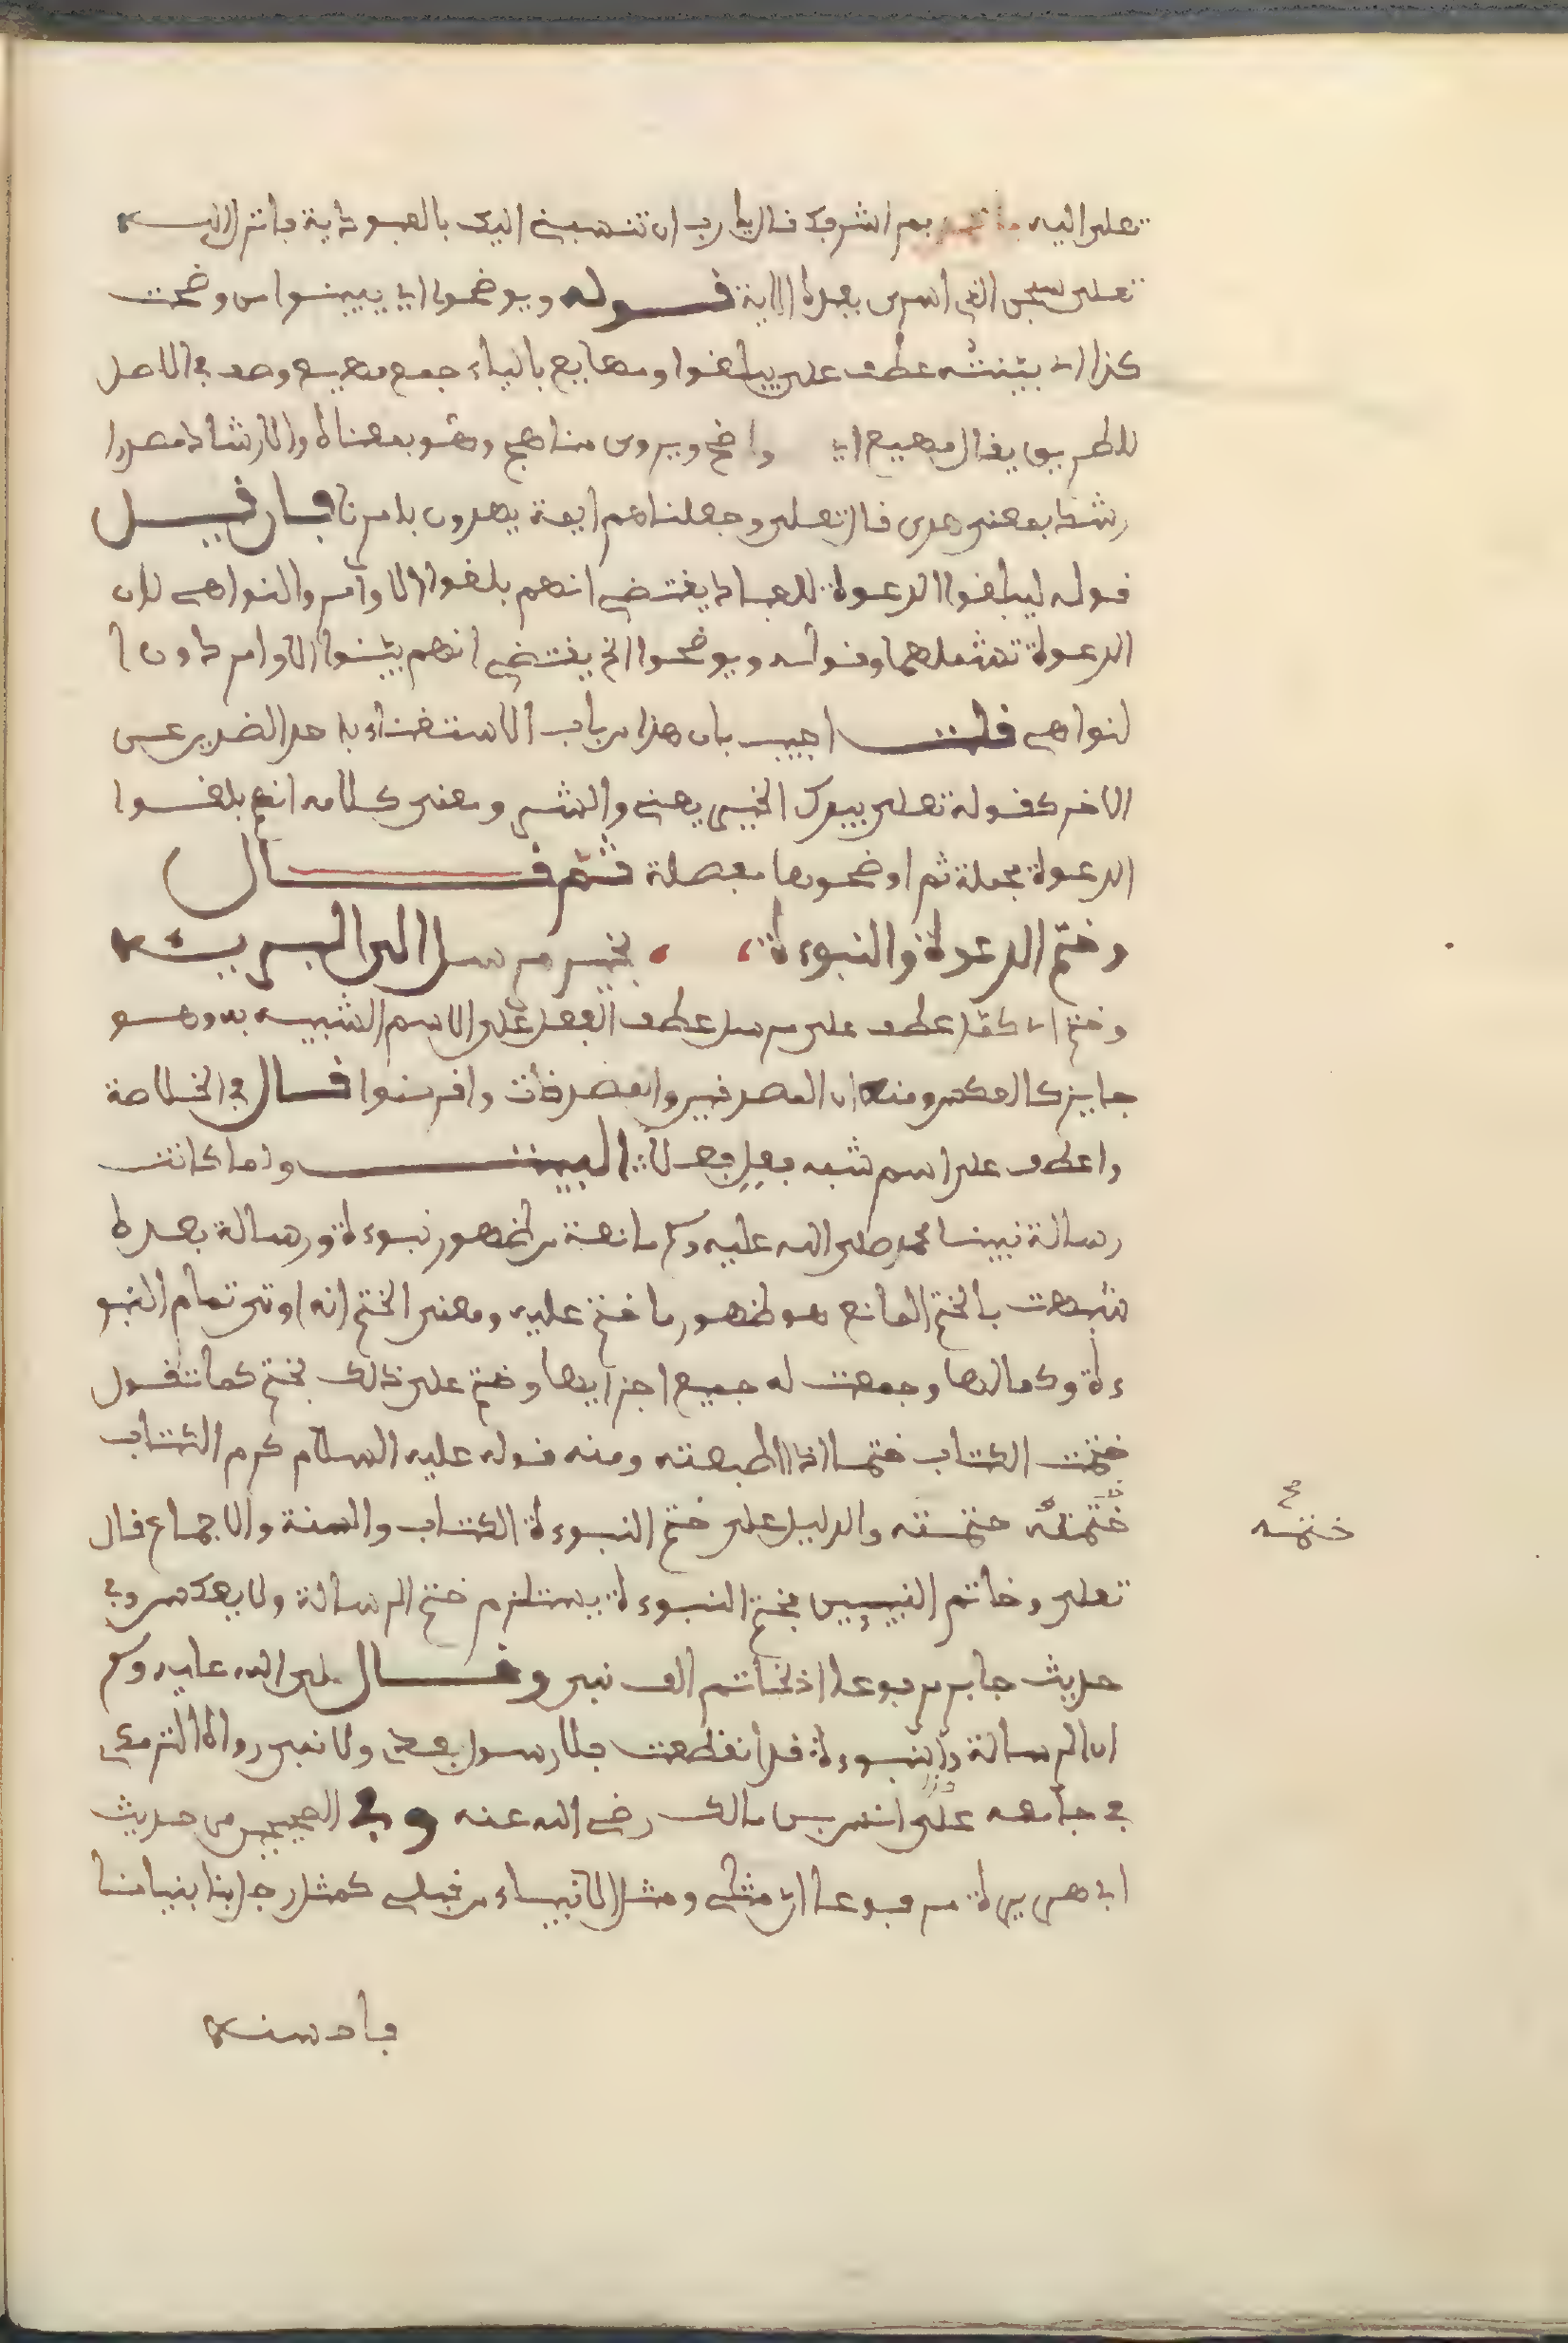 تعلى اليه بم اشرفك فال يا رب ان تنسبني اليك بالعبودية فانزل الله
تعلى سبحن الذي اسرى بعبده الاية فوله ويوضحوا اي يبينوا من وضحت
كذا اي بينته عطف على يبلغوا ومهايع بالياء جمع مهيع وهو في الاصل
للطريق يفال مهيع اي واضح ويروى مناهج وهو بمعناه والارشاد مصدر ا
رشد بمعنى هدى فال تعلى وجعلناهم ايمة يهدون بامرنا فان فيل
فوله ليبلغوا الدعوة للعباد يفتضي انهم بلغوا الاوامر والنواهي لان
الدعوة تشملهما وفوله ويوضحوا الخ يفتضي انهم بينوا الاوامر دون ا
لنواهي فلت اجيب بان هذا من باب الاستغناء باحد الضدين عن
الاخر كفوله تعلى بيدك الخير يعني والشر ومعنى كلامه انهم بلغوا
الدعوة مجملة ثم اوضحوها مفصلة ثم فال
وختم الدعوة والنبوءة ، ، بخير مرسل الى البريه
وختم اي كمل عطف على مرسل عطف الفعل على الاسم الشبيه به وهو
جايز كالعكس ومنه ان المصدفين والمصدفات وافرضوا فال في الخلاصة
واعطف على اسم شبه فعل فعلا البيت ولما كانت
رسالة نبينا محمد صلى الله عليه وسلم مانعة من ظهور نبوءة ورسالة بعده
شبهت بالختم المانع هو ظهور ما ختم عليه ومعنى الختم انه اوتي تمام النبو
ءة وكمالها وجمعت له جميع اجزايها وختم على ذلك بختم كما تفول
ختمت الكتاب ختما اذا طبعته ومنه فوله عليه السلام كرم الكتاب
ختمه ختمته والدليل على ختم النبوءة الكتاب والسنة والاجماع فال
تعلى وخاتم النبيين بختم النبوءة يستلزم ختم الرسالة ولا يعكس وفي
حديث جابر مرفوعا اذ لخاتم الف نبي وفال صلى الله عليه وسلم
ان الرسالة والنبوءة فد انفطعت فلا رسول بعدي ولا نبي رواه الترمذي
في جامعه انس بن مالك رضي الله عنه وفي الصحيحين من حديث
ابي هريرة مرفوعا ان مثلي ومثل الانبياء من فبلي كمثل رجل بنا بنيانا
فاحسنه
ختمه
صح